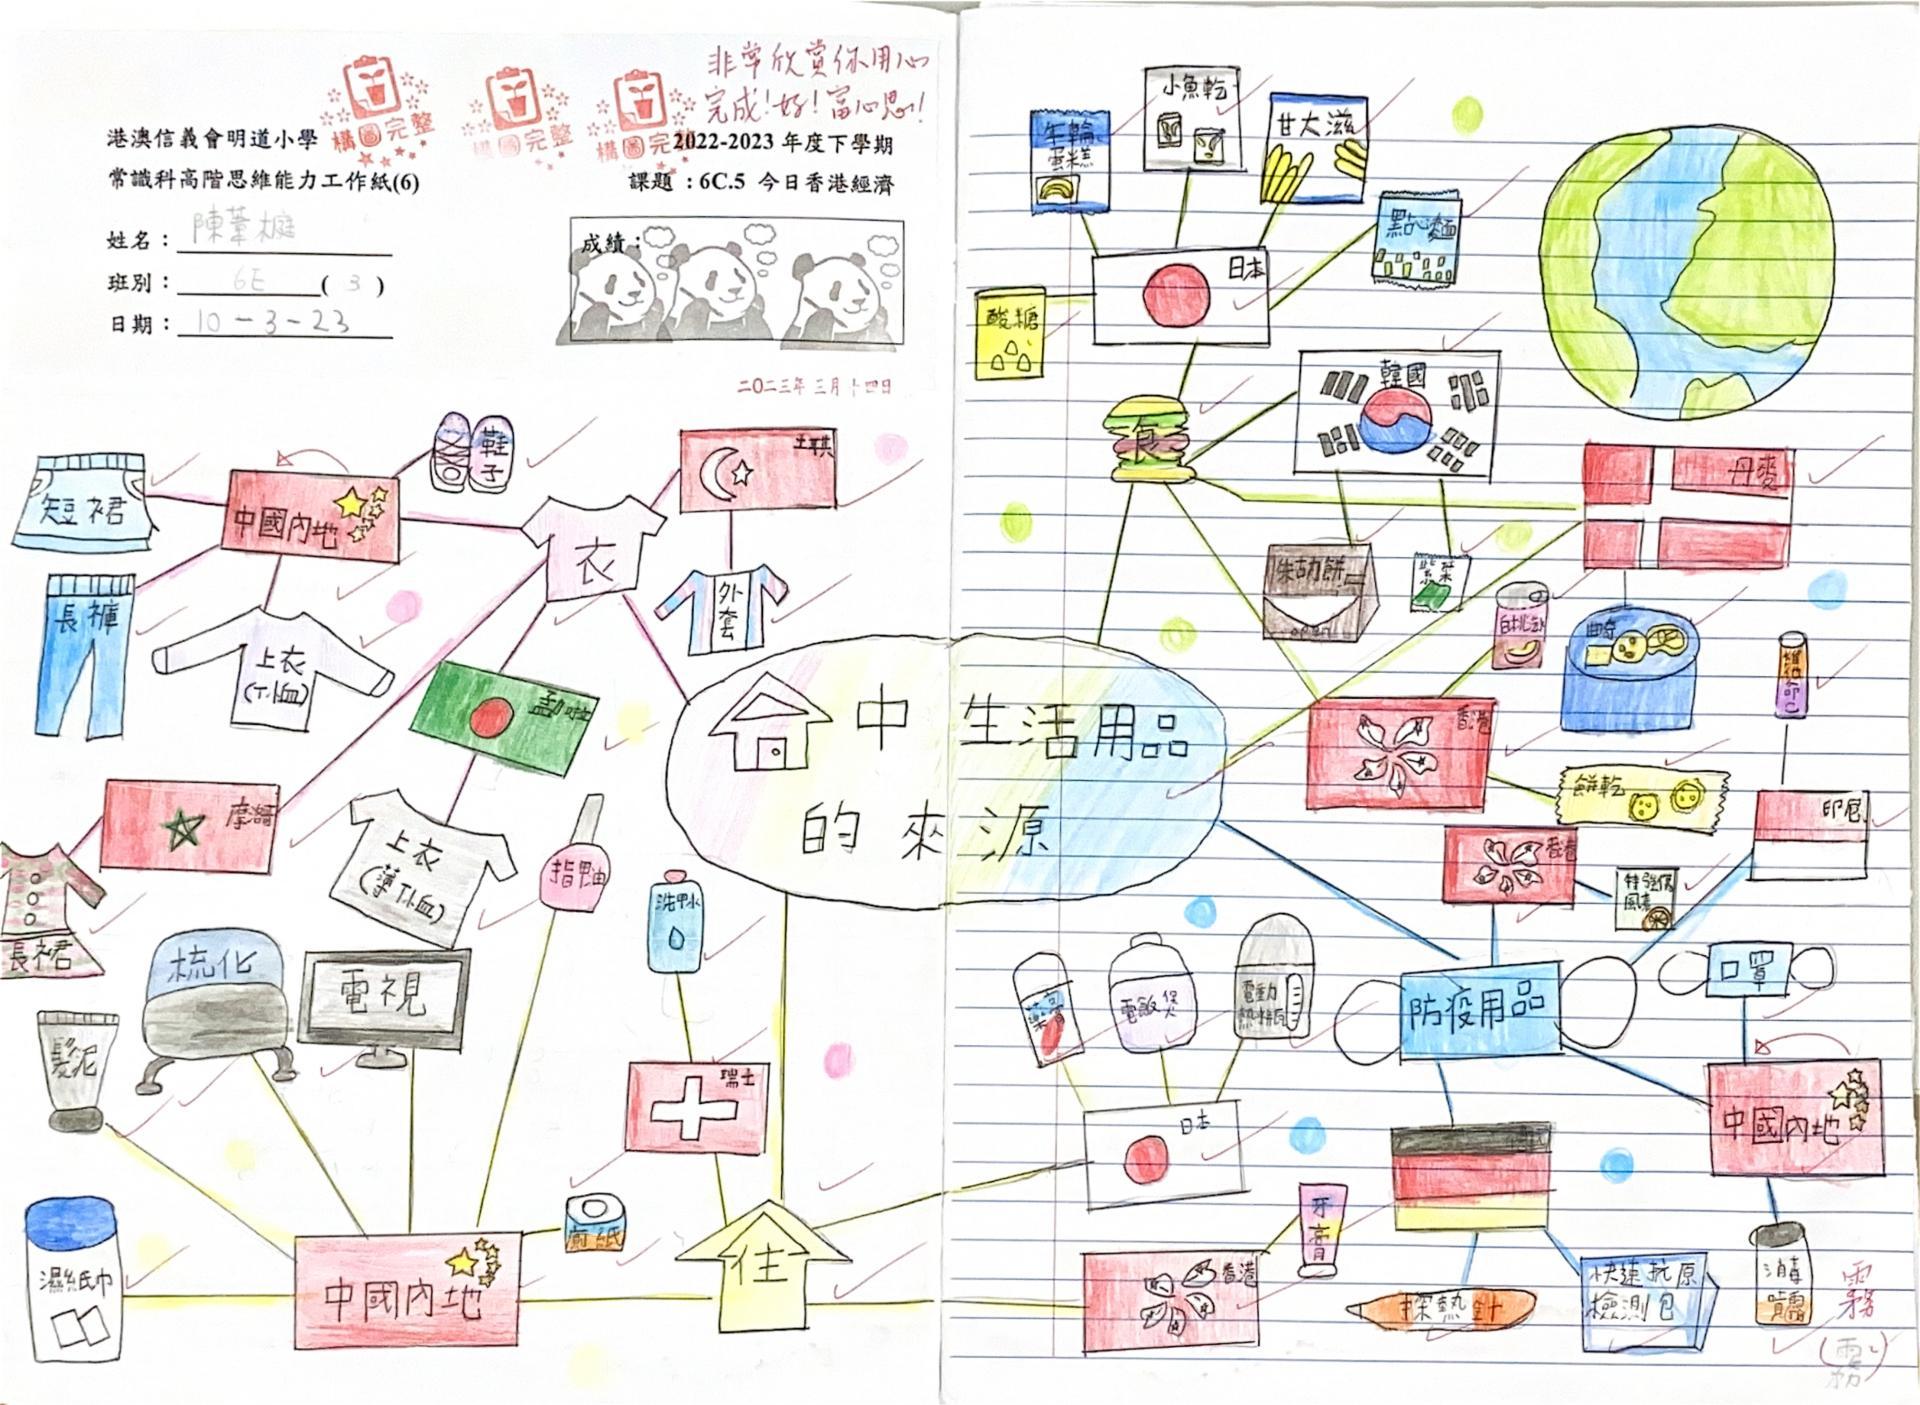 非常欣賞你用心
完成！好！富心思！
構圖完整
構圖完整
構圖完整
港澳信義會明道小學
2022-2023 年度下學期
常識科高階思維能力工作紙(6)
課題：6C.5 今日香港經濟
姓名：陳葦
班別：6E ( 3 )
日期：10-3-23
成績：
二〇二三年三月十四日
短裙
中國內地
鞋子
長褲
上衣
(T-恤)
衣
土耳其
外套
孟加拉
摩洛哥
長裙
上衣
(薄T-恤)
指甲油
洗甲水
梳化
電視
髮泥
濕紙巾
中國內地
廁紙
瑞士
住
家中生活用品
的來源
年輪
蛋糕
小魚乾
甘大滋
點心麵
酸糖
日本
食
韓國
丹麥
紫菜
open
曲奇
香港
餅乾
印尼
香港
特強傷
風素
口罩
防疫用品
中國內地
藥膏
電飯煲
電動
熱水瓶
日本
牙膏
香港
探熱針
快速抗原
檢測包
消毒
噴霧
霧
(霧)